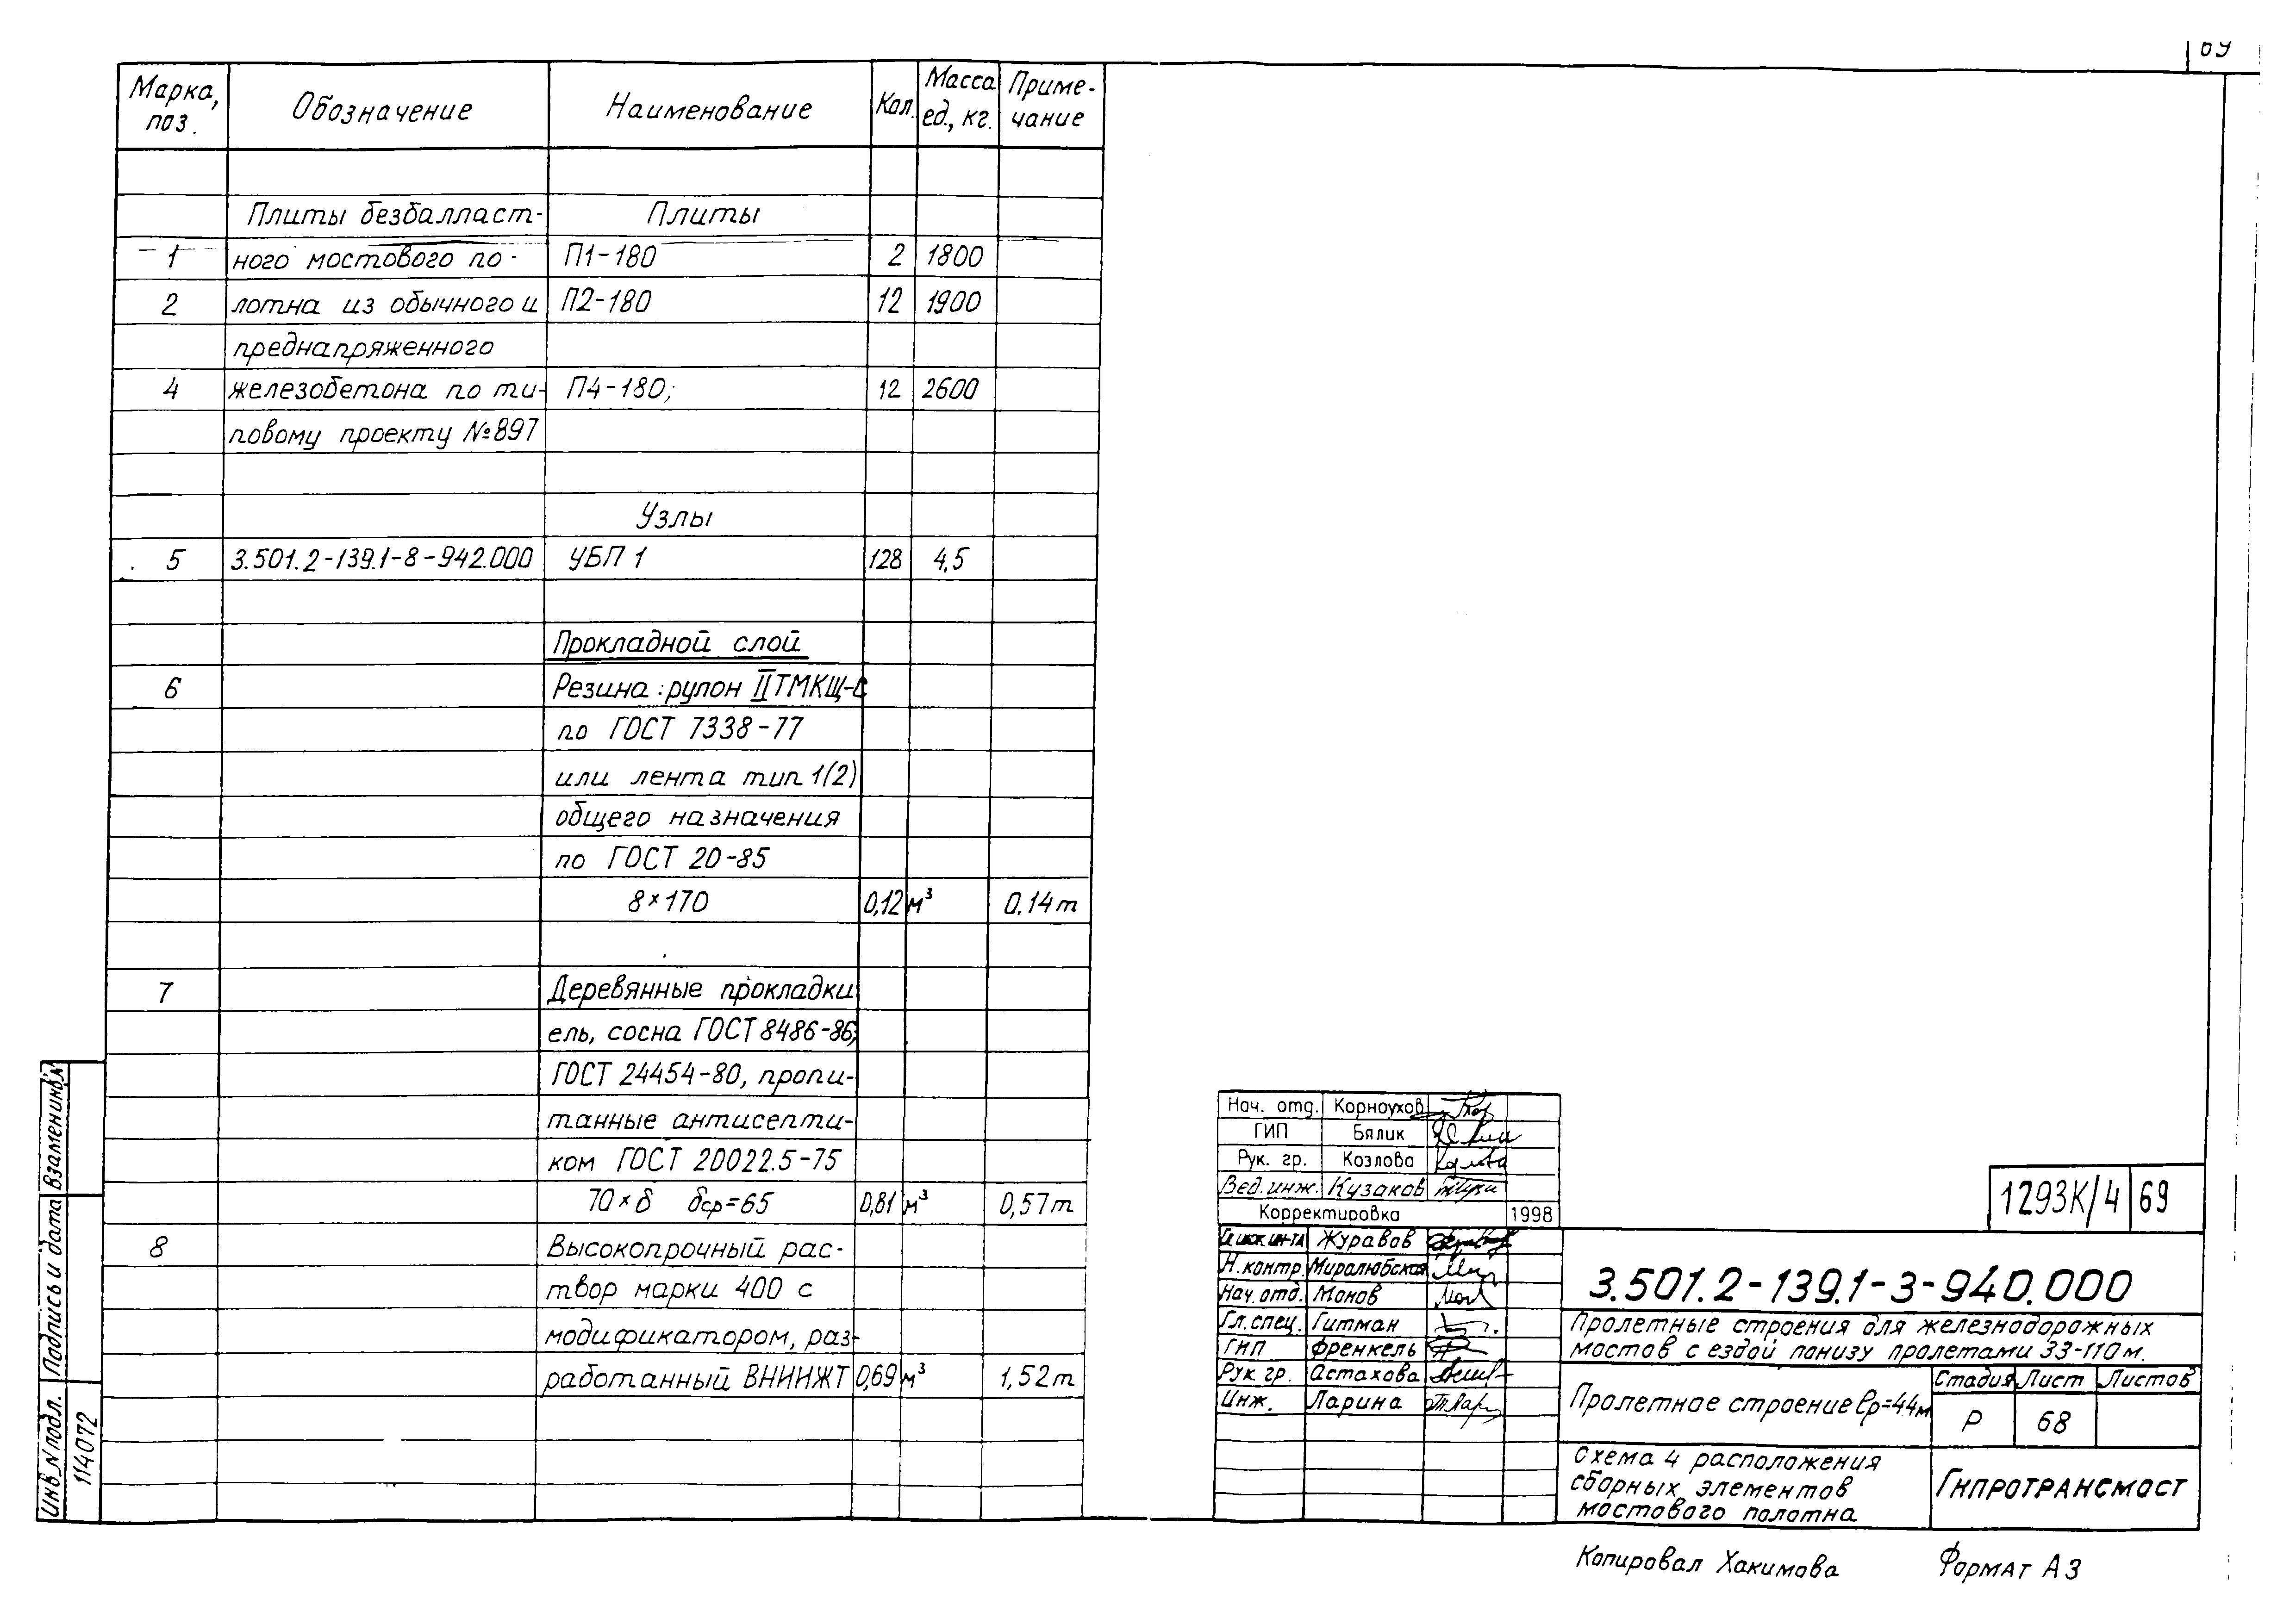 69
Марка, поз. Обозначение Наименование Кол. Масса ед., кг. Приме-чание
Плиты безбалласт- Плиты
1 ного мостового по- П1-180 2 1800
2 лотна из обычного и П2-180 12 1900
преднапряженного
4 железобетона по ти- П4-180; 12 2600
повому проекту №897
Узлы
5 3.501.2-139.1-8-942.000 УБП 1 128 4,5
Прокладной слой
6 Резина: рулон II ТМКЩ-С
по ГОСТ 7338-77
или лента тип 1(2)
общего назначения
по ГОСТ 20-85
8×170 0,12 м³ 0.14 т
7 Деревянные прокладки
ель, сосна ГОСТ 8486-86;
ГОСТ 24454-80, пропи-
танные антисепти-
ком ГОСТ 20022.5-75
70×δ δср=65 0,81 м³ 0,57 т
8 Высокопрочный рас-
твор марки 400 с
модификатором, раз-
работанный ВНИИЖТ 0,69 м³ 1,52 т
Взамен инв.№
Подпись и дата
Инв. N подл.
114072
Нач. отд. Корноухов
ГИП Бялик
Рук. гр. Козлова
Вед. инж. Кузаков
Корректировка 1998
Гл. инж. ин-та Журавов
Н. контр. Миролюбская
Нач. отд. Монов
Гл. спец. Гитман
ГИП Френкель
Рук гр. Астахова
Инж. Ларина
1293К/4 69
3.501.2-139.1-3-940.000
Пролетные строения для железнодорожных
мостов с ездой понизу пролетами 33-110 м.
Пролетное строение ℓр=44м
Стадия Лист Листов
Р 68
Схема 4 расположения
сборных элементов
мостового полотна
Гипротрансмост
Копировал Хакимова Формат А3